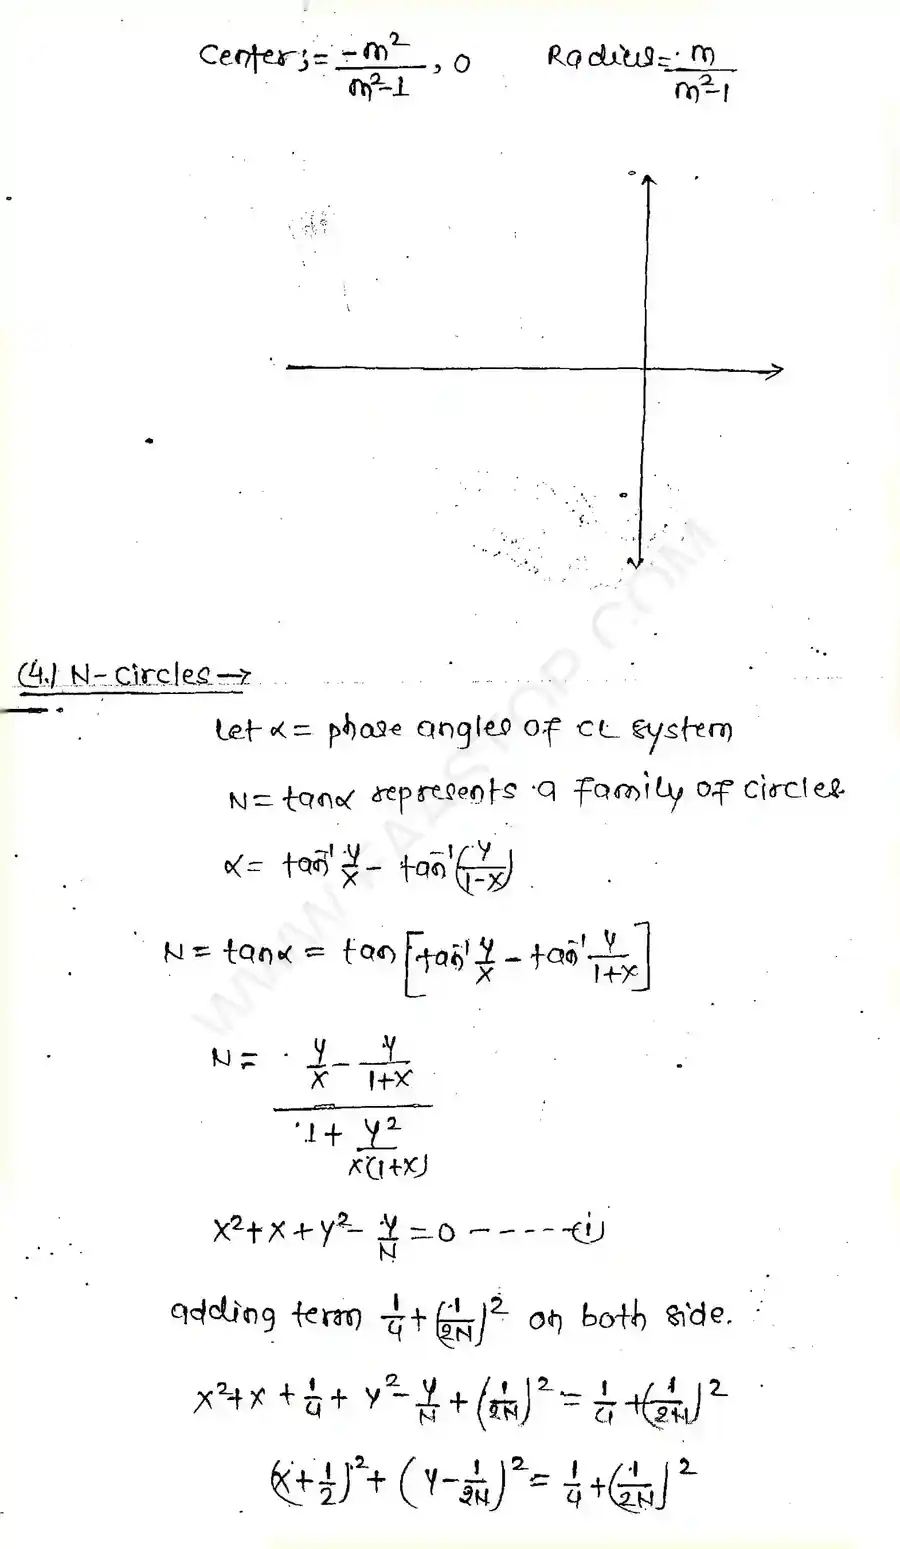 Center; = -m²/m²-1, 0 Radius = m/m²-1
(4.) N-circles →
Let α = phase angles of CL system
N = tanα represents a family of circles
α = tan⁻¹ y/x - tan⁻¹(y/1-x)
N = tanα = tan [tan⁻¹ y/x - tan⁻¹ y/1+x]
N = y/x - y/1+x
1 + y²/x(1+x)
x² + x + y² - y/N = 0 ------(i)
adding term 1/4 + (1/2N)² on both side.
x² + x + 1/4 + y² - y/N + (1/2N)² = 1/4 + (1/2N)²
(x + 1/2)² + (y - 1/2N)² = 1/4 + (1/2N)²